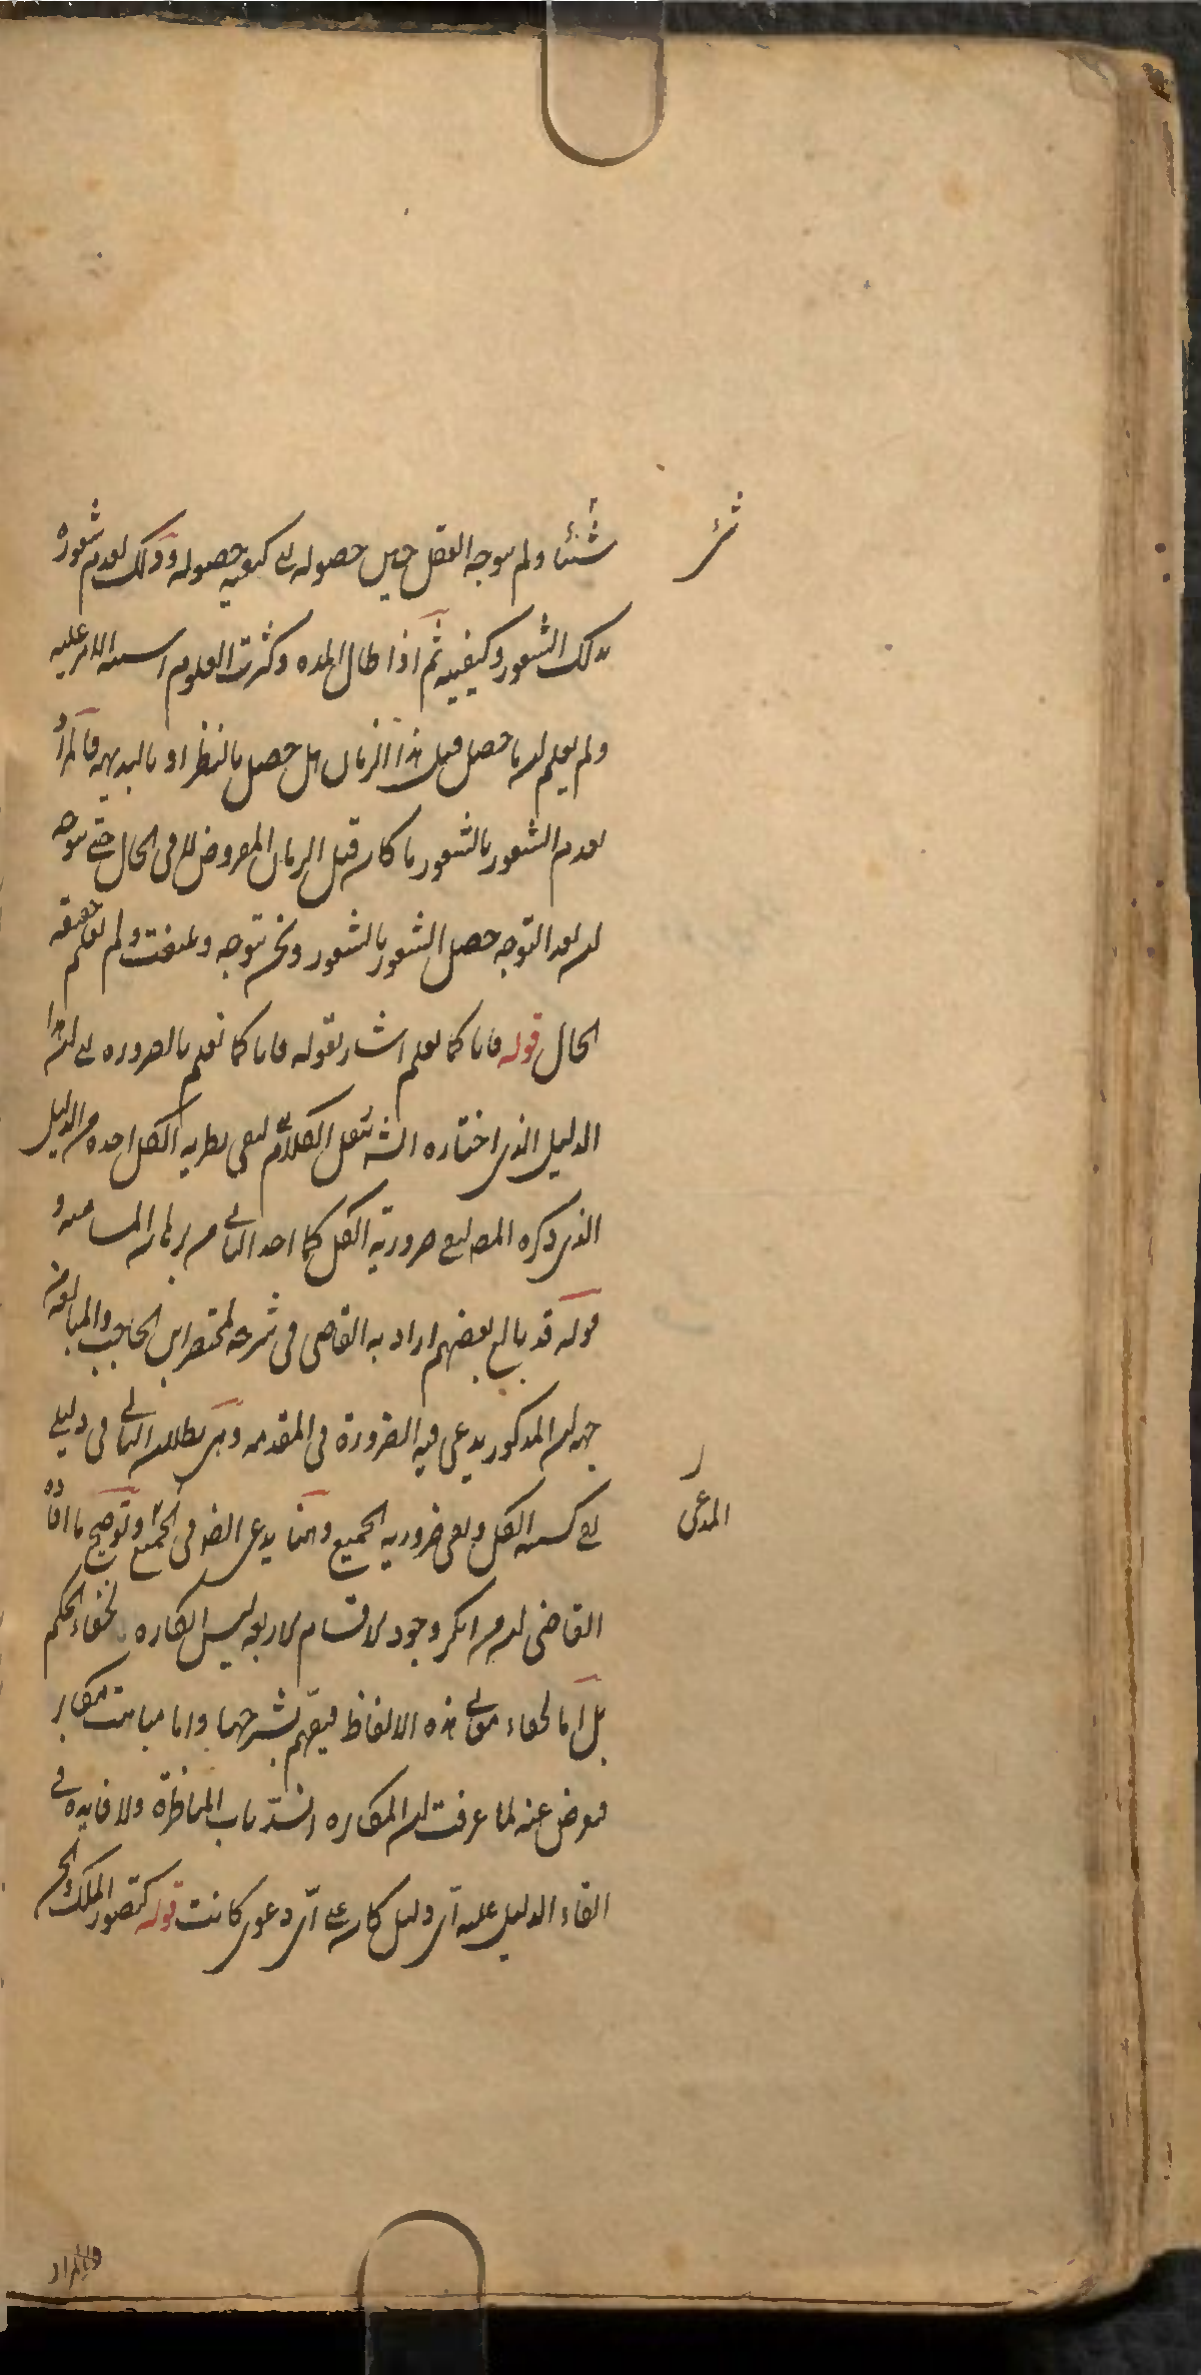 شيئا ولم يتوجه العقل حين حصوله الى كيفية حصوله وذلك لعدم شعوره
بذلك الشعور وكيفيته ثم اذا طال المدة وكثرت العلوم اشتبه الامر عليه
ولم يعلم ان ما حصل قبل هذا الزمان هل حصل بالنظر او بالبديهة
لعدم الشعور بالشعور ما كان قبل الزمان المفروض لا فى الحال حتى يتوجه
ان بعد التوجه حصل الشعور بالشعور ونحن نتوجه ونلتفت ولم نعلم حقيقة
الحال قوله فانا كما نعلم اشار بقوله فانا كما نعلم بالضرورة الى ان هذا
الدليل الذى اختاره الش ينفى نظرية الكل احده من الدليل
الذى ذكره المص لنفى ضرورية الكل كما
قوله قد بالغ بعضهم اراد به القاضى فى شرحه لمختصر ابن الحاجب والمبالغة من
جهة ان المذكور يدعى فيه الضرورة فى المقدمة وهى بطلان التالى فى دليلى
نفى كسبية الكل ونفى ضرورية الجميع وهنا يدعى الضرورة فى الجميع وتوضيح ما افاده
القاضى ان من انكر وجود الاقسام الاربعة ليس انكاره لخفاء الحكم
بل اما لخفاء معانى هذه الالفاظ فيفهم بشرحها واما مباهت مكابر
فيعرض عنه لما عرفت ان المكابرة انسد باب المناظرة ولا فايدة فى
القاء الدليل عليه اى دليل كان على اى دعوى كانت قوله كتصور الملك الخ
المدعى
والمراد